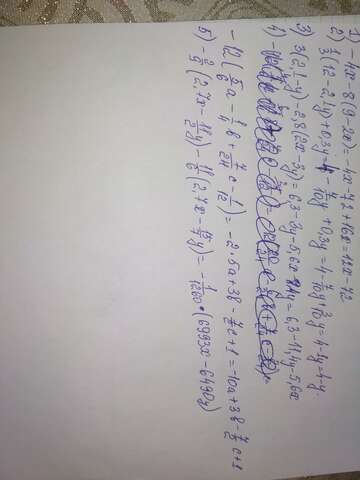 1) -4x-8(9-2x)=-4x-72+16x=12x-72
2) 1/3(12-2,1y)+0,3y=4-7/10y+0,3y=4-7/10y+3/10y=4-4y=4-y.
3) 3(2,1-y)-2,8(2x-3y)=6,3-3y-5,6x-8,4y=6,3-11,4y-5,6x
4)
-12(5/6a-1/4b+7/24c-1/12)=-2·5a+3b-7/2c+1=-10a+3b-7/2c+1
5) -2/9(2,7x-11/5y)-11/6(2,7x-
=-1/1200·(6993x-6490y)